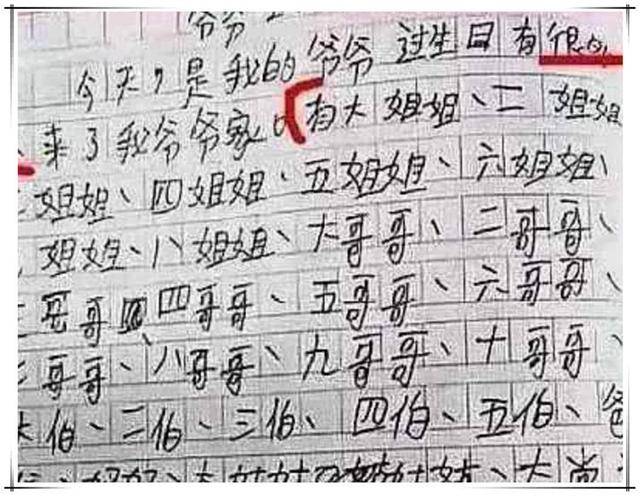 爷爷
今天,是我的爷爷过生日有很
来了我爷爷家。有大姐姐、二姐姐
姐姐、四姐姐、五姐姐、六姐姐、
姐姐、八姐姐、大哥哥、二哥哥、
三哥哥四哥哥、五哥哥、六哥哥、
哥哥、八哥哥、九哥哥、十哥哥、
大伯、二伯、三伯、四伯、五伯、爸